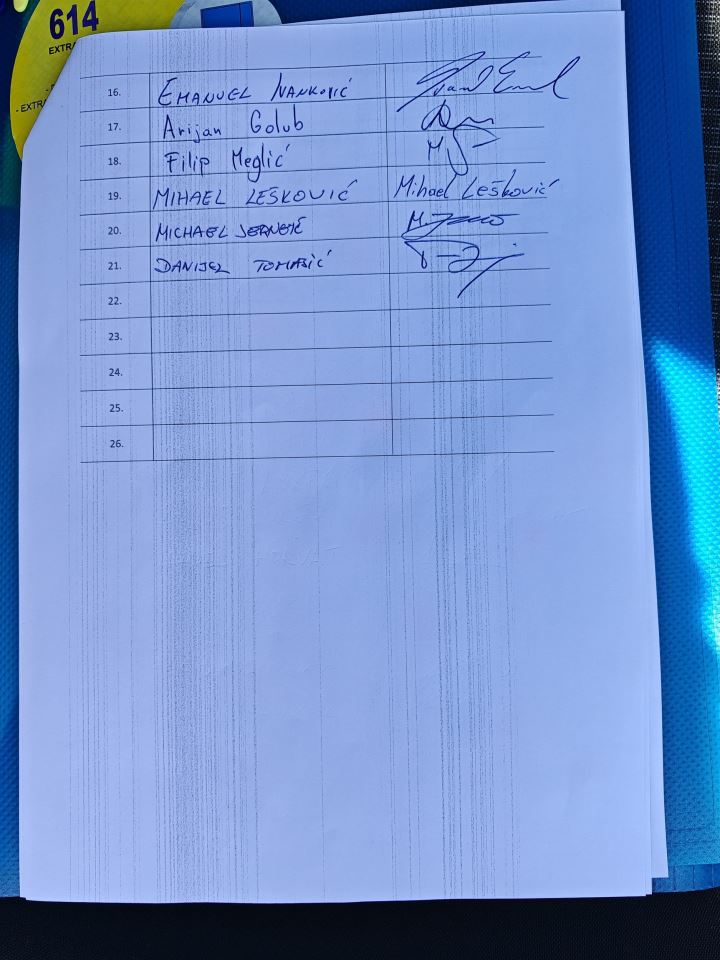 614
EXTRA
- EXTRA
16. EMANUEL IVANKOVIĆ
17. Arijan Golub
18. Filip Meglić
19. MIHAEL LEŠKOVIĆ Mihael Lešković
20. MICHAEL
21. DANIJEL TOMAŠIĆ
22.
23.
24.
25.
26.